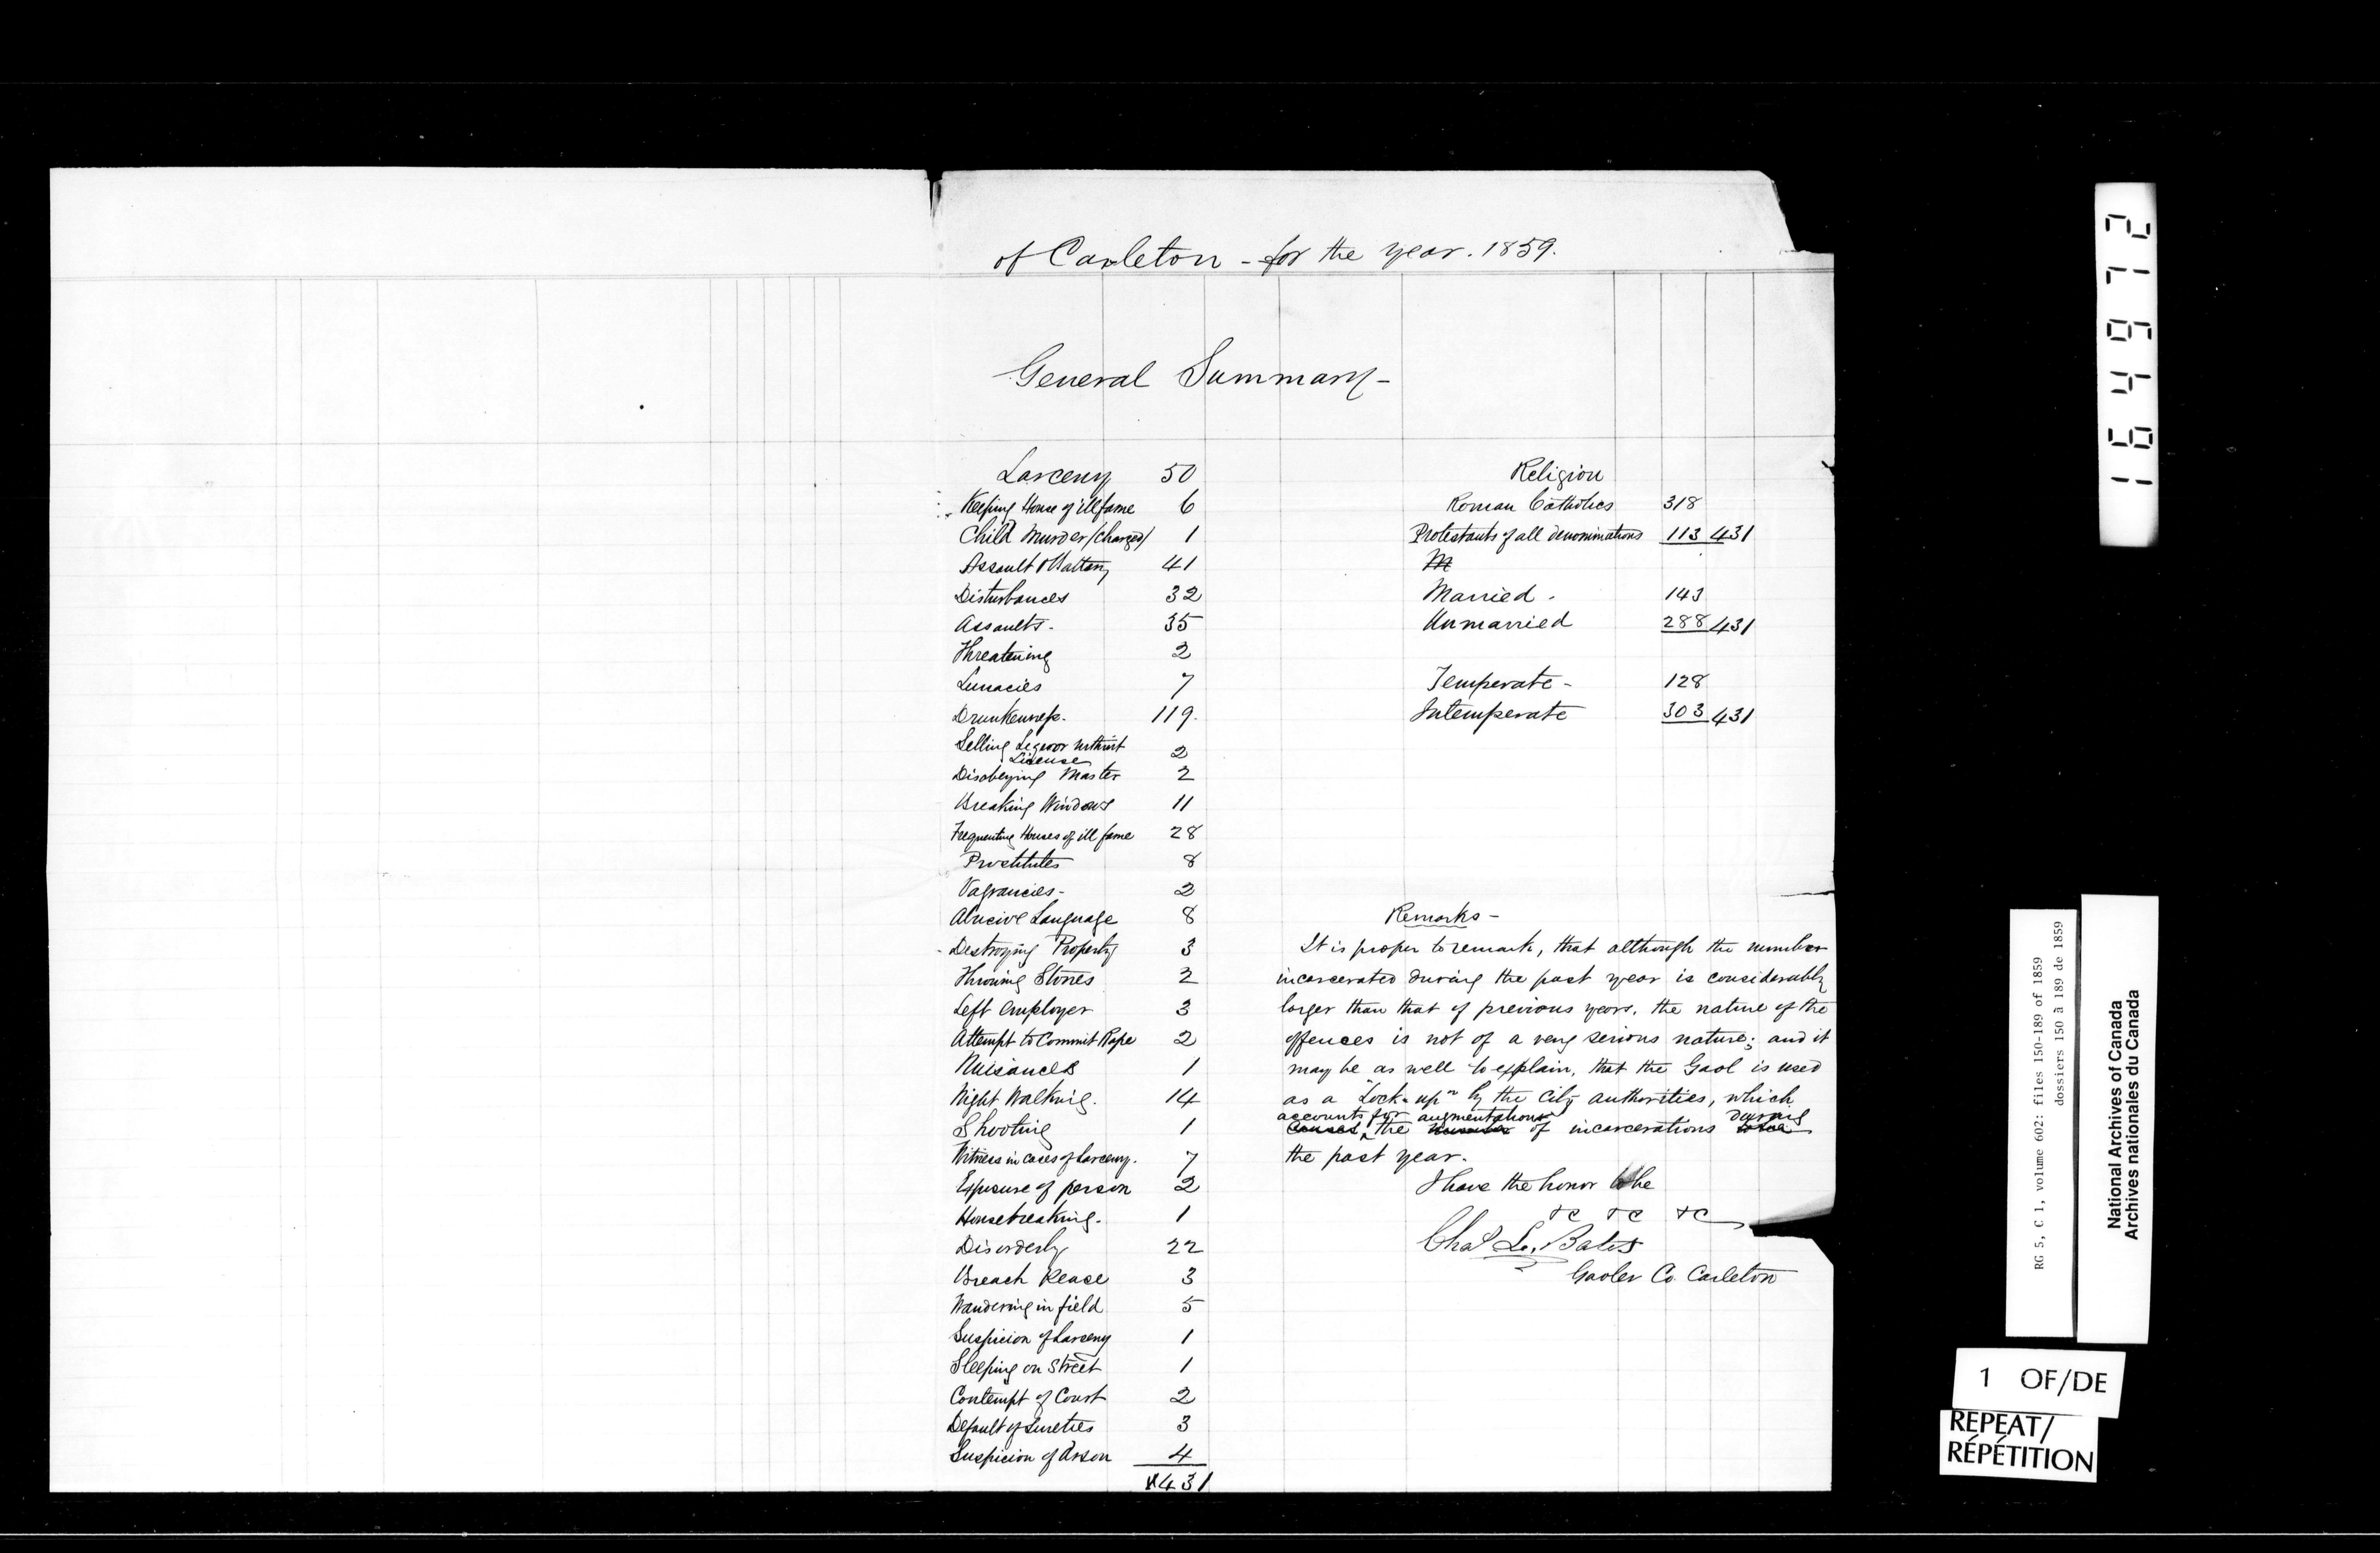 of Carleton - for the year. 1859.
General Summary -
Larceny 50
Keeping House of ill fame 6
Child Murder (Charged) 1
Assault & Battery 41
Disturbances 32
Assaults - 35
Threatening 2
Lunacies 7
Drunkenness. 119.
Selling Liquor without
License 2
Disobeying Master 2
Breaking Windows 11
Frequenting Houses of ill fame 28
Prostitutes 8
Vagrancies - 2
Abucive Language 8
Destroying Property 3
Throwing Stones 2
Left Employer 3
Attempt to Commit Rape 2
Nuisances 1
Night Walking. 14
Shooting 1
Witness in cases of Larceny. 7
Exposure of person 2
Housebreaking. 1
Disorderly 22
Breach Peace 3
Wandering in field 5
Suspicion of Larceny 1
Sleeping on Street 1
Contempt of Court 2
Default of Sureties 3
Suspicion of Arson 4
431
Religion
Roman Catholics 318
Protestants of all denominations 113 431
M
Married . 143
Unmarried 288 431
Temperate - 128
Intemperate 303 431
Remarks -
It is proper to remark, that although the number
incarcerated during the past year is considerably
larger than that of previous years, the nature of the
offences is not of a very serious nature; and it
may be as well to explain, that the Gaol is used
as a "Lock-up" by the City authorities, which
accounts for augmentations during
causes the number of incarcerations
the past year.
I have the honor to be
&c &c &c
Chas L. Bates
Gaoler Co. Carleton
164972
RG 5, C 1, volume 602: files 150-189 of 1859
dossiers 150 à 189 de 1859
National Archives of Canada
Archives nationales du Canada
1 OF/DE
REPEAT/
RÉPÉTITION